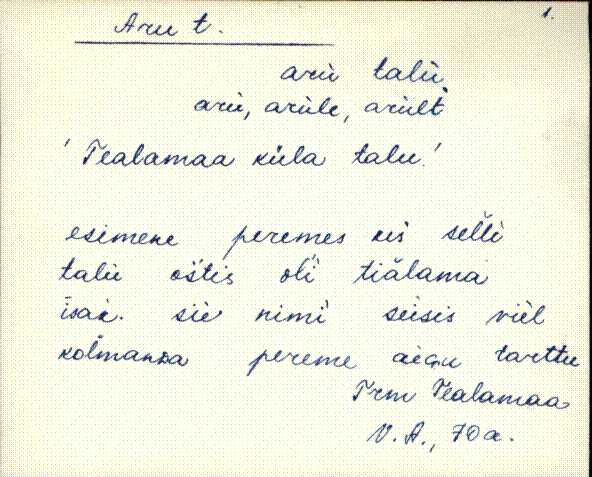 1.
Aru t.
aru talu
aru, arule, arult
'Tealamaa küla talu!
esimene peremes kis selli
talu ostis oli tiälama
isak. sie nimi seisis viel
kolmanda pereme aigu tarttu
Trm Tealamaa
V. A., 70 a.